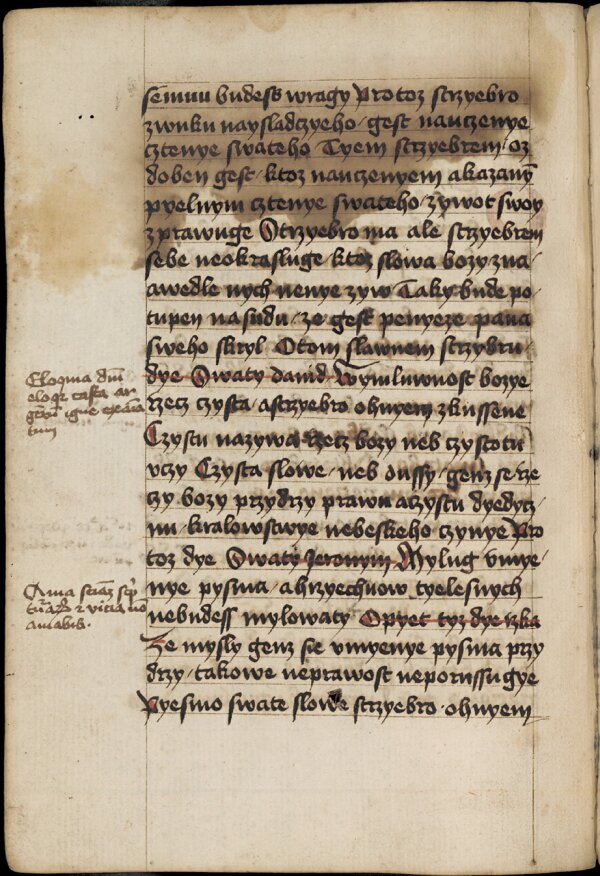 semuu budess wragy Protoz strzyebro
zwuku naysladczyeho · gest nauczenye
cztenye swateho Tyem strzyebrem · oz
doben gest · ktoz nauczenyem a kazany
pyelnym cztenye swateho · zywot swoy
zprawuge Strzyebro ma ale strzyebrem
sebe neokrasluge · ktoz slowa bozy zna ·
awedle nych nenye zyw Taky bude po
tupen na sudu · ze gest penyeze pana
sweho skryl O tom slawnem strzybru ·
dye Swaty dauid Wymluwnost bozye
rzecz czysta · a strzyebro ohnyem zkussene
Czystu nazywa rzecz bozy neb czystotu
vczy Czysta slowe · neb dussy · genz se rze
czy bozy przydrzy prawu a czystu dyedycz ·
nu · kralowstwye nebeskeho czynye Pro
toz dye Swaty Jeronym Mylug vmye ·
nye pysma · a hrzyechuow tyelesnych
nebudess mylowaty Opyet tyz dye rzka
Ze mysly genz sie vmyenye pysma przy
drzy · takowe neprawost neporussugye
Pyesmo swate slowe strzyebro · ohnyem
Eloquia dni
eloqa casta ar
gentu igne exaina
tum
Ama sciam scrip
turar z vicia no
amabis ·